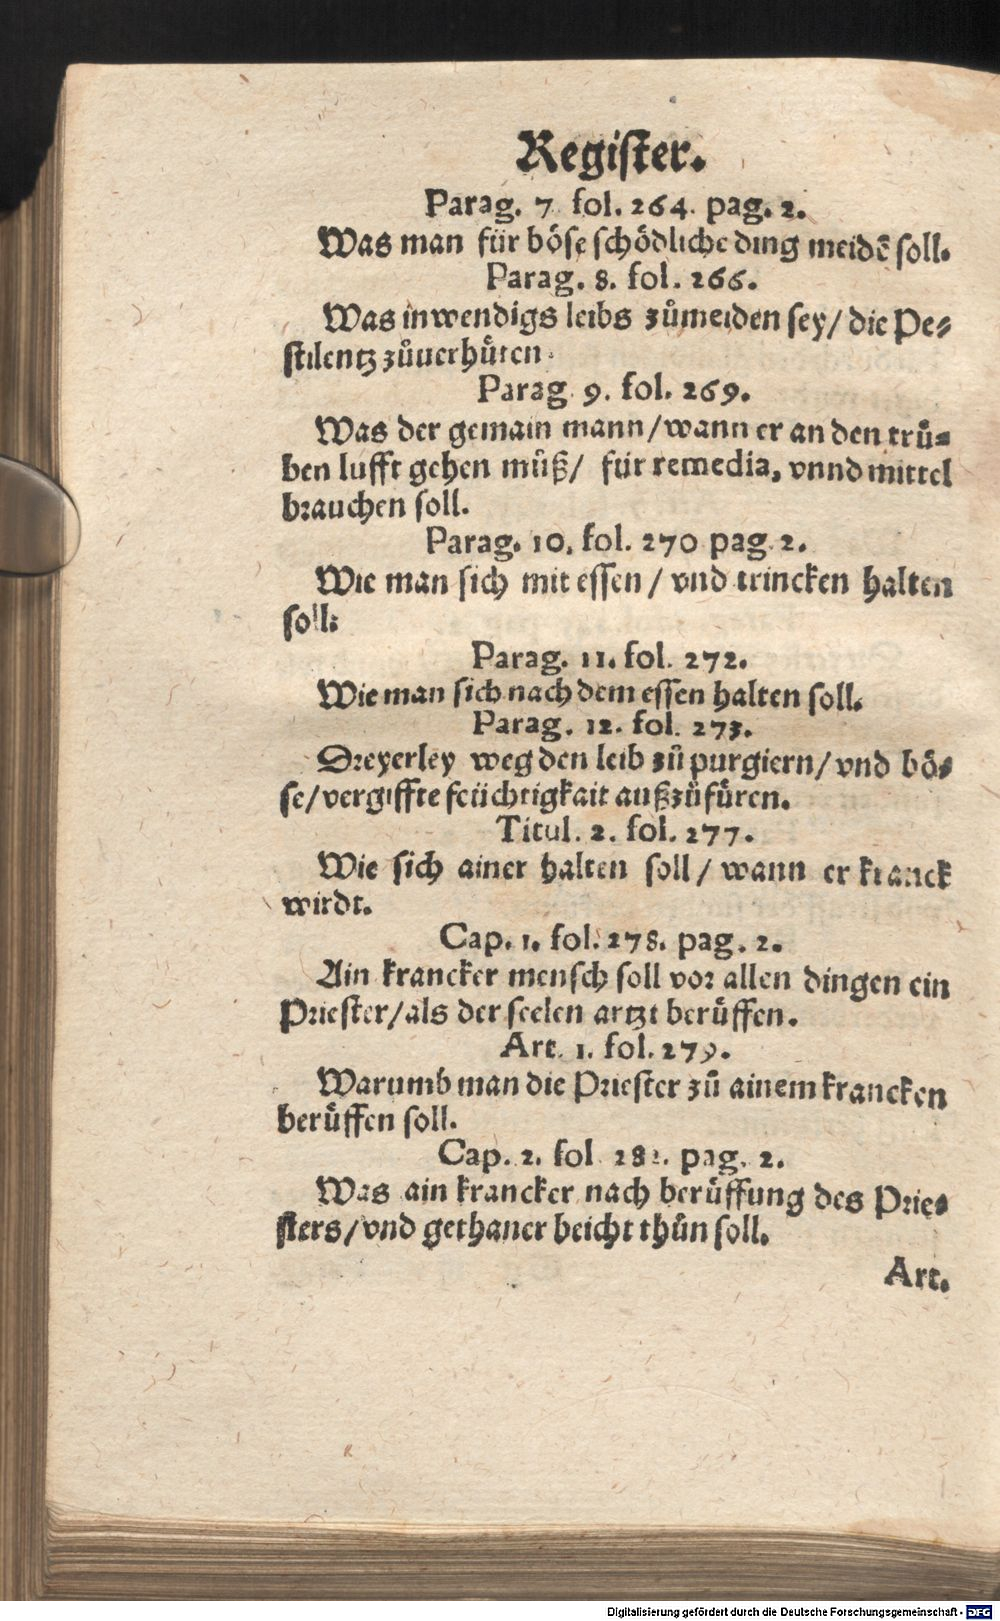 Register.
Parag. 7. fol. 264. pag. 2.
Was man für böse schödliche ding meidē soll.
Parag. 8. fol. 266.
Was inwendigs leibs zůmeiden sey/ die Pe⸗
stilentz zůuerhüten.
Parag. 9. fol. 269.
Was der gemain mann/ wann er an den trü⸗
ben lufft gehen můß/ für remedia, vnnd mittel
brauchen soll.
Parag. 10. fol. 270 pag. 2.
Wie man sich mit essen/ vnd trincken halten
soll.
Parag. 11. fol. 272.
Wie man sich nach dem essen halten soll.
Parag. 12. fol. 273.
Dreyerley weg den leib zů purgiern/ vnd bö⸗
se/ vergiffte feüchtigkait außzůfüren.
Titul. 2. fol. 277.
Wie sich ainer halten soll/ wann er kranck
wirdt.
Cap. 1. fol. 278. pag. 2.
Ain krancker mensch soll vor allen dingen ein
Priester/ als der seelen artzt berůffen.
Art. 1. fol. 279.
Warumb man die Priester zů ainem krancken
berůffen soll.
Cap. 2. fol. pag. 2.
Was ain krancker nach berůffung des Prie⸗
sters/ vnd gethaner beicht thůn soll.
Art.
Digitalisierung gefördert durch die Deutsche Forschungsgemeinschaft - DFG